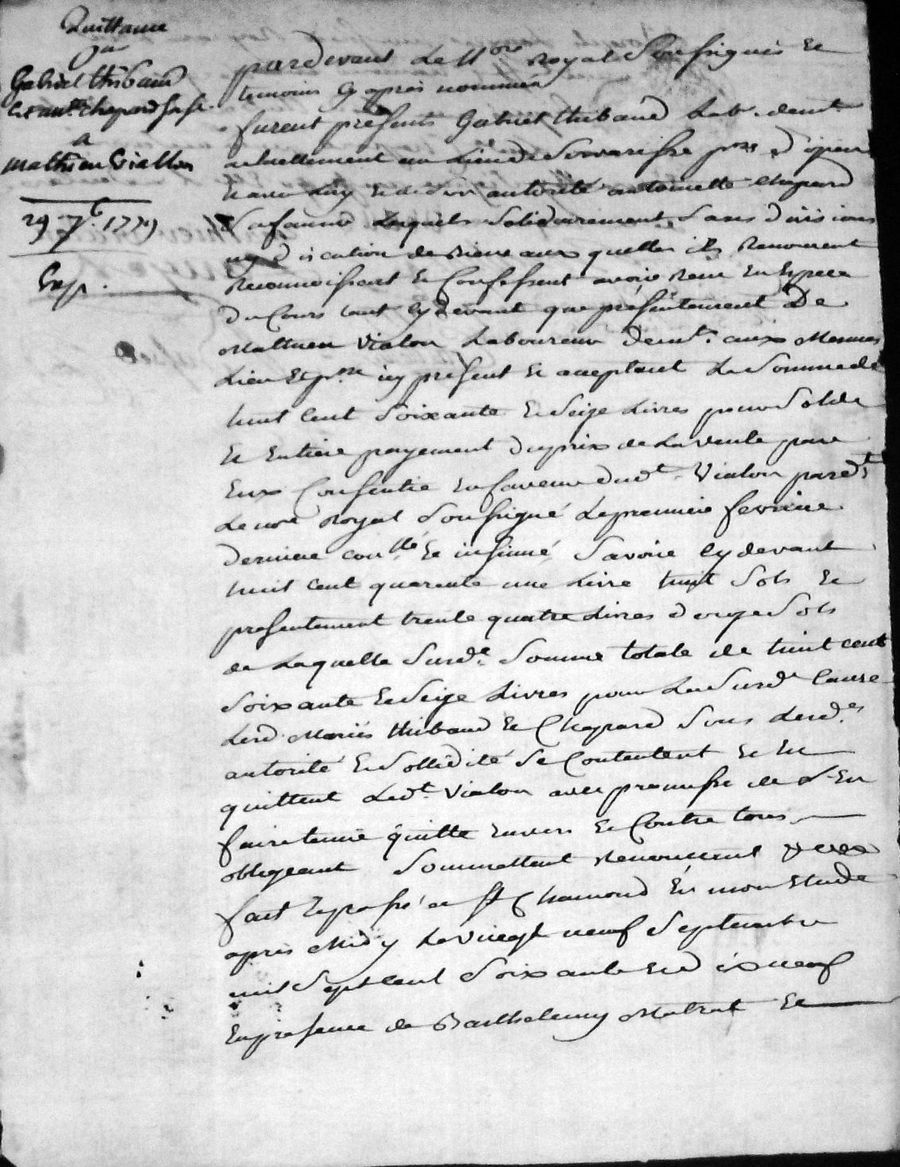 Quittance
par
Gabriel thibaud
et antte. Chapard sa fe
a
mathieu Viallon
29 7bre. 1779
Exp.
pardevant Le Nore Royal Soussignés et
temoins Cy apres nommés
furent présents Gabriel thibaud Lab. demt
actuellement au Lieu de
et avec Luy et de Son autorité antoinette Chapard
Sa femme Lesquels Solidairement Sans division
ny discution de Biens auxquelles ils Renoncent
Reconnoissent et Confessent avoir Receu En Espece
du Cours tant Cy devant que présentement De
Mathieu Vialon Laboureur demt. aux Memes
Lieu et psse icy présent et acceptant La Somme de
huit Cent Soixante et Seize Livres pour Solde
et Entier payement du prix de La vente par
Eux Consentie En faveur dudt. Vialon pardt
Le nore Royal Soussigné Le premier fevrier
dernier conllé et insinué Savoir Cy devant
huit Cent quarente une Livre huit Sols et
présentement trente quatre Livres douze Sols
de Laquelle Susde. Somme totale de huit Cent
Soixante et Seize Livres pour La Susde Cause
Lesd. Mariés thibaud et Chapard Sous Lesdes
autorité et Sollidité Se Contentent et En
quittent Ledt. Vialon avec promesse de L'En
faire tenir quitte Envers et Contre tous
obligeant Sommettant Renoncent &
fait et passé a St Chamond En mon Etude
apres Midy Le vingt neuf Septembre
mil Sept Cent Soixante et dix neuf
En presence de Barthelemy Matrat et